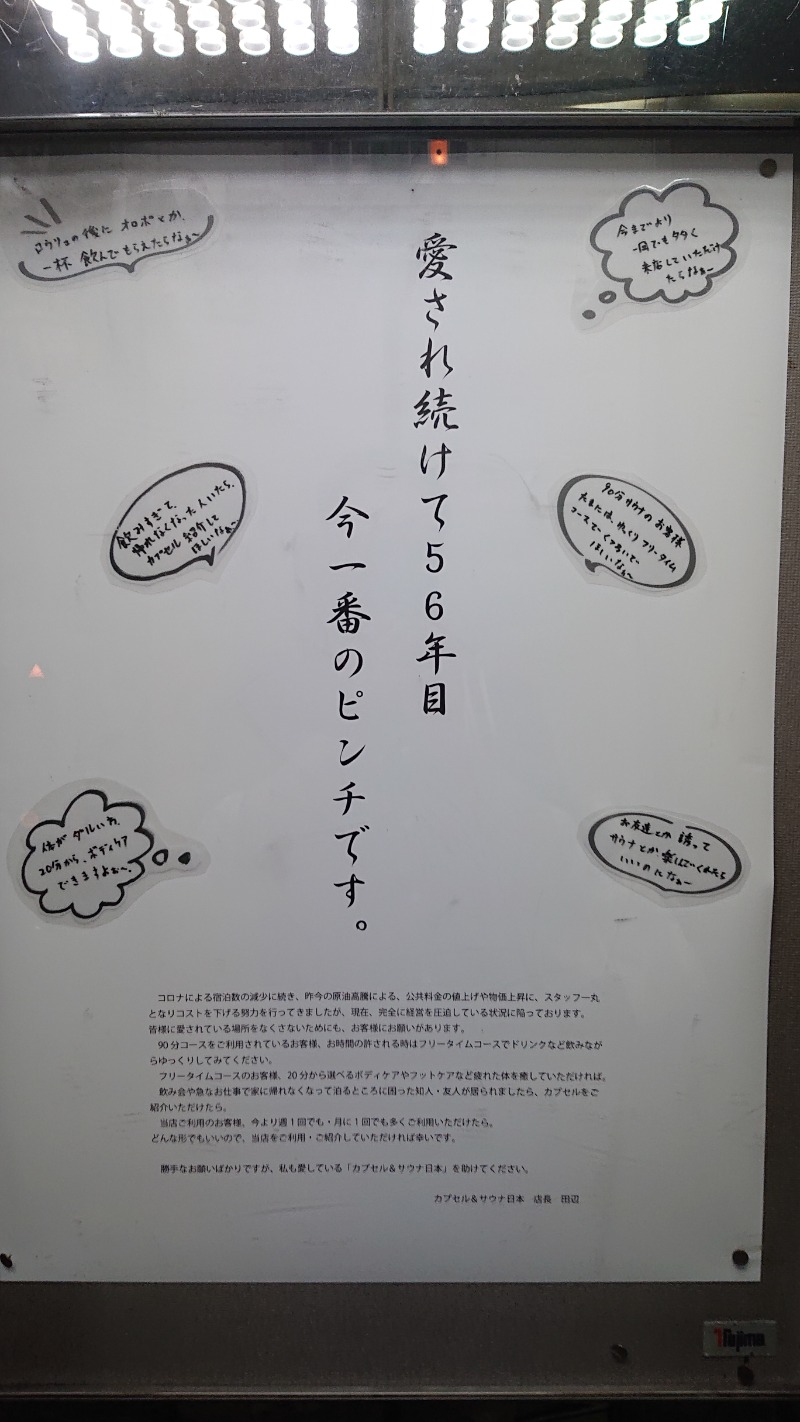 愛され続けて56年目
今一番のピンチです。
今までより
一回でも多く
来店していただけ
たらなぁー
ロウリュの後に オロポとか、
一杯 飲んでもらえたらなぁ〜
90分サウナのお客様
たまには、ゆっくりフリータイム
コースでくつろいで
ほしいなぁ〜
飲みすぎて、
帰れなくなった人いたら、
カプセル紹介して
ほしいなぁ〜
お友達とか 誘って
サウナとか楽しんでくれたら
いいのになぁー
体がダルいわ、
20分から、ボディケア
できますよぉ〜。
コロナによる宿泊数の減少に続き、昨今の原油高騰による、公共料金の値上げや物価上昇に、スタッフ一丸
となりコストを下げる努力を行ってきましたが、現在、完全に経営を圧迫している状況に陥っております。
皆様に愛されている場所をなくさないためにも、お客様にお願いがあります。
90分コースをご利用されているお客様、お時間の許される時はフリータイムコースでドリンクなど飲みなが
らゆっくりしてみてください。
フリータイムコースのお客様、20分から選べるボディケアやフットケアなど疲れた体を癒していただければ。
飲み会や急なお仕事で家に帰れなくなって泊るところに困った知人・友人が居られましたら、カプセルをご
紹介いただけたら。
当店ご利用のお客様、今より週1回でも・月に1回でも多くご利用いただけたら。
どんな形でもいいので、当店をご利用・ご紹介していただければ幸いです。
勝手なお願いばかりですが、私も愛している「カプセル&サウナ日本」を助けてください。
カプセル&サウナ日本 店長 田辺
Tajima